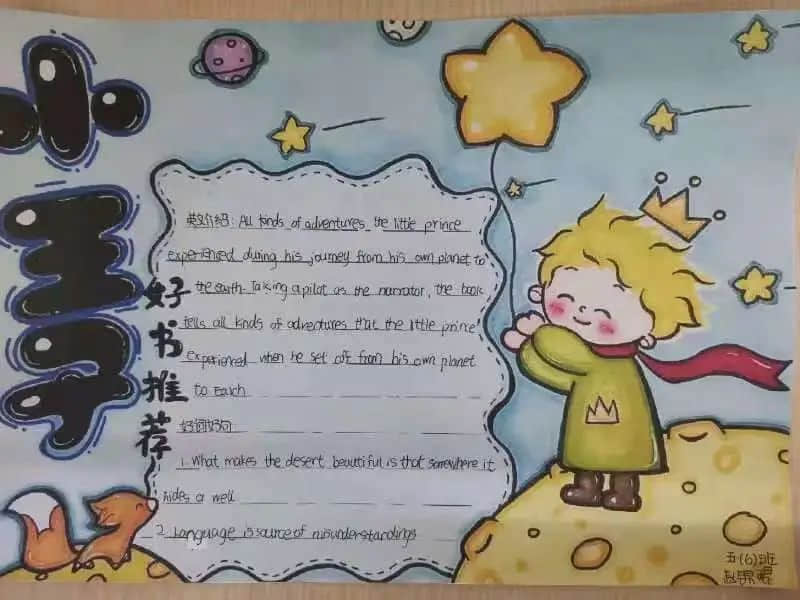 小王子
好书推荐
英文介绍: All kinds of adventures the little prince
experienced during his journey from his own planet to
the earth. Taking a pilot as the narrator, the book
tells all kinds of adventures that the little prince
experienced when he set off from his own planet
to Earth
好词好句
1. What makes the desert beautiful is that somewhere it
hides a well
2. Language is source of misunderstandings
五(6)班